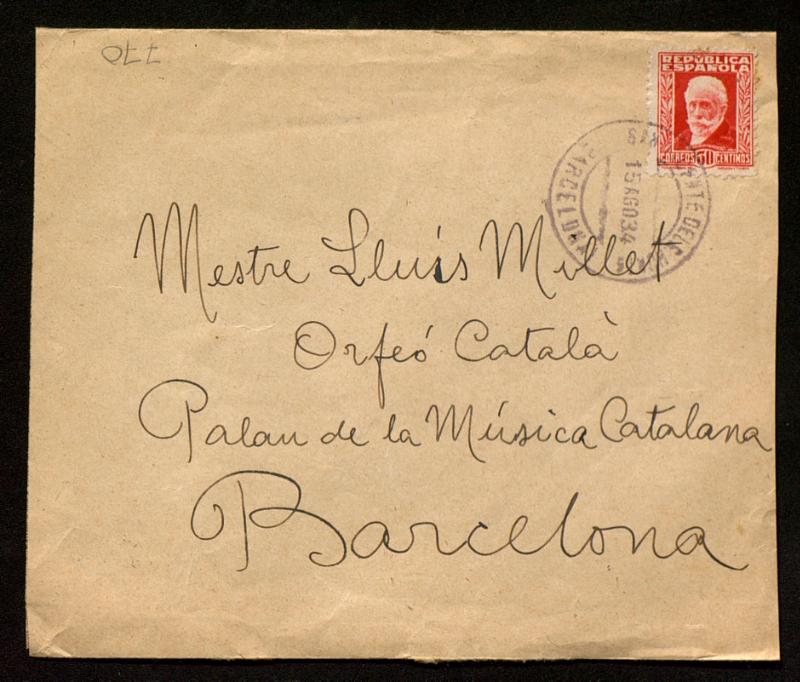 770
REPÚBLICA
ESPAÑOLA
CORREOS 30 CENTIMOS
15 AGO 34
BARCELONA
Mestre Lluís Millet
Orfeó Català
Palau de la Música Catalana
Barcelona